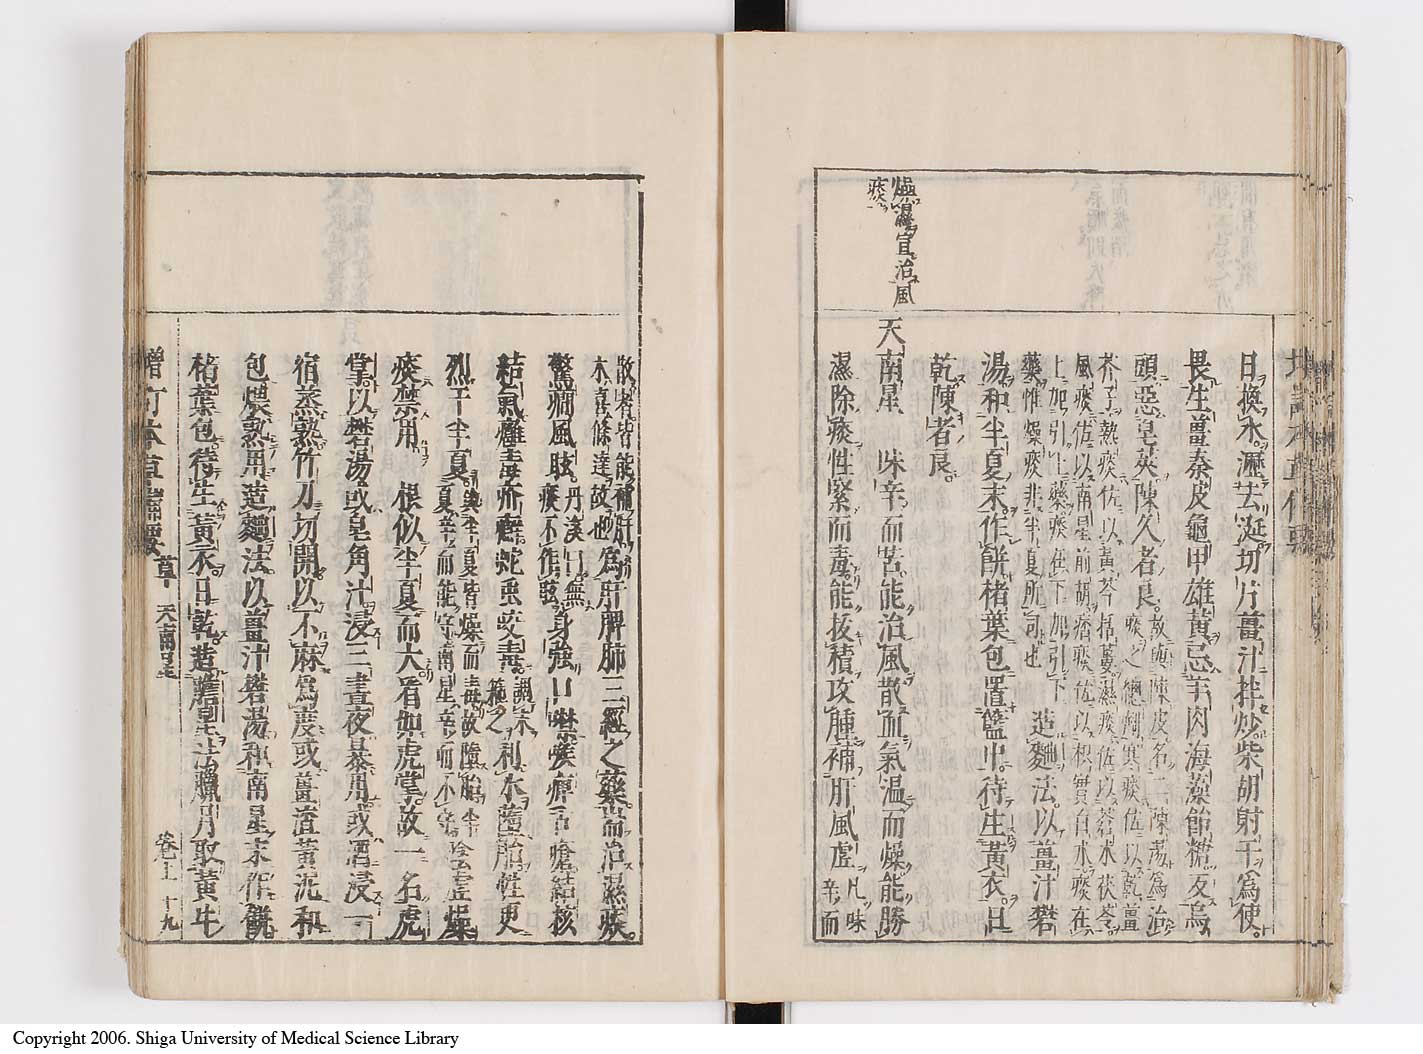 日換水瀝去涎切片薑汁拌炒柴胡射干為使
畏生薑秦皮龜甲雄黃忌羊肉海藻飴糖反烏
頭惡皂莢陳久者良
故與陳皮名二陳湯為治
痰之總劑寒痰佐以乾薑
芥子熱痰佐以黃芩栝蔞濕痰佐以蒼朮茯苓
風痰佐以南星前胡痞痰佐以枳實白朮痰在
上加引上藥痰在下加引下
藥惟燥痰非半夏所司也
造麴法以薑汁礬
湯和半夏末作餅楮葉包置籃中待生黃衣日
乾陳者良
燥濕宣治風
痰
天南星 味辛而苦能治風散血氣溫而燥能勝
濕除痰性緊而毒能拔積攻腫補肝風虛
凡味
辛而
散者皆能補肝
木喜條達故也
為肝脾肺三經之藥而治濕痰
驚癇風眩
丹溪曰無
痰不作眩
身強口噤喉痺舌瘡結核
結氣癰毒疥癬蛇蟲咬毒
調末
箍之
利水墮胎性更
烈于半夏
與半夏皆燥而毒故墮胎半
夏辛而能守南星辛而不守
陰虛燥
痰禁用 根似半夏而大看如虎掌故一名虎
掌以礬湯或皂角汁浸三晝夜暴用或酒浸一
宿蒸熟竹刀切開以不麻為度或薑渣黃泥和
包煨熟用造麴法以薑汁礬湯和南星末作餅
楮葉包待生黃衣日乾造膽星法臘月取黃牛
增訂本草備要 草 天南星 卷上 十九
Copyright 2006. Shiga University of Medical Science Library